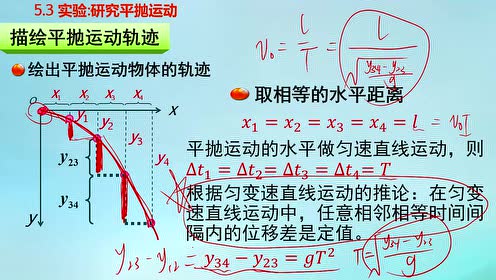 5.3 实验:研究平抛运动
描绘平抛运动轨迹
绘出平抛运动物体的轨迹
x₁ x₂ x₃ x₄
x
y₁
y₂
y₃
y₄
y₂₃
y₃₄
y
v₀ = l/T = l/√((y₃₄-y₂₃)/g)
取相等的水平距离
x₁ = x₂ = x₃ = x₄ = L = v₀T
平抛运动的水平做匀速直线运动，则
Δt₁ = Δt₂ = Δt₃ = Δt₄ = T
根据匀变速直线运动的推论：在匀变
速直线运动中，任意相邻相等时间间
隔内的位移差是定值。
y₂₃ - y₁₂ = y₃₄ - y₂₃ = gT²
T = √((y₃₄-y₂₃)/g)